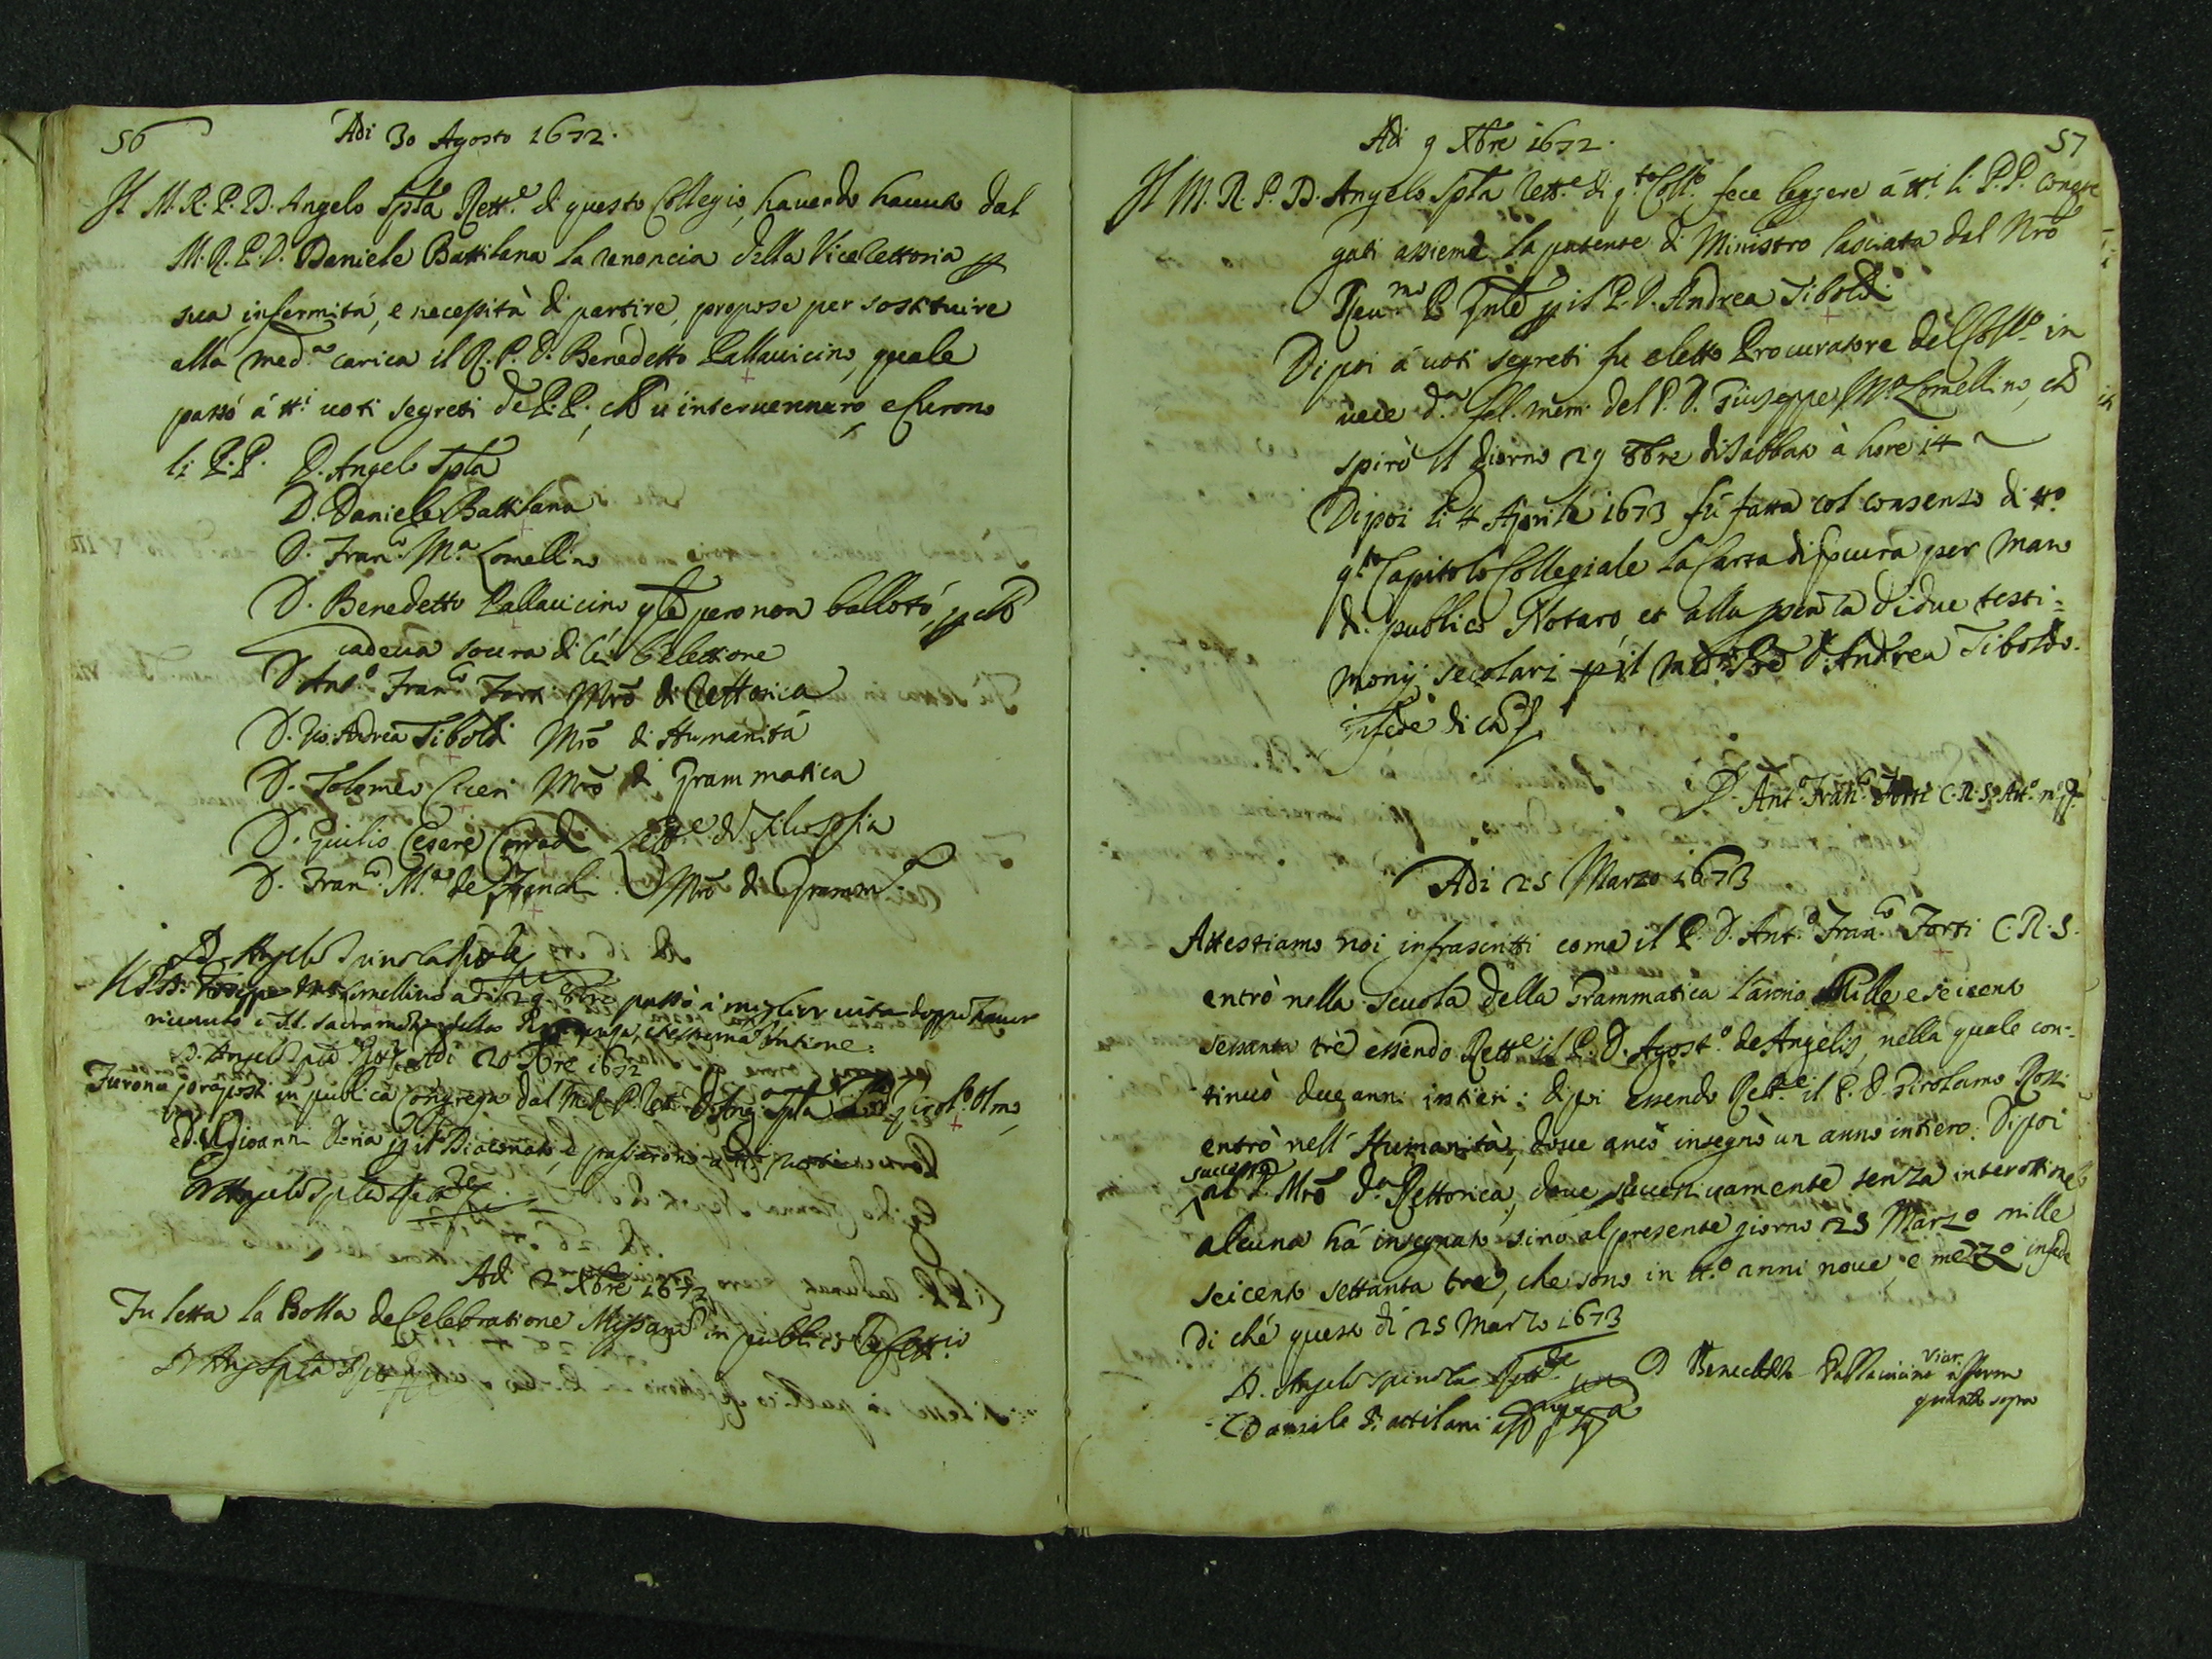 56
Adi 30 Agosto 1672.
Il M. R. P. D. Angelo Spla Rett.e di questo Collegio, havendo havuto dal
M. R. P. D. Daniele Battilana la renoncia della Vicerettoria p
sua infermità, e necessità di partire, propose per sostituire
alla med.a carica il R. P. D. Benedetto Pallavicino, quale
passò á tti voti segreti de P. P. che v'intervennero, e furono
li P. P. D. Angelo Spla
D. Daniele Battilana
D. Fran.co M.a Lomellino
D. Benedetto Pallavicino però non ballotó, p che
cadeva sovra di lui l'elettione
D. Ant.o Fran.co Forti Mrō di Rettorica
D. Gio. Andrea Tiboldi Mrō di Humanità
D. Tolomeo Mrō di Grammatica
D. Giulio Cesare Corradi Lett.e di Filosofia
D. Fran.co M.a de Franchi Mrō di Gramm.
D. Angelo Spinola
Il P. D. Lomellino adi 29 8bre passò a miglior vita doppo haver
ricevuto i S.ti sacramenti della Penitenza, estrema Untione.
D. Angelo Adi 20 Xbre 1672
Furono proposti in publica Congreg.ne dal M. R. P. Rett.e D. Ang.o Spla Girol.o Olmo,
e D. Gioanni Doria p il Diaconato, e passarono a tti
D. Angelo Spla Rett.e
Adi 2 Xbre 1672
Fu letta la Bolla de Celebratione Missarū in publico Reffett.rio
D. Ang. Spla Rett.e
57
Adi 9 Xbre 1672.
Il M. R. P. D. Angelo Spla Rett.e di q.to Coll.o fece leggere á tti li P. P. congre
gati assieme la patente di Ministro lasciata dal Nrō
Reu.mo P. Gnle p il P. D. Andrea Tiboldi
Dipoi á voti segreti fu eletto Procuratore del Coll.o in
vece d.a fel. mem. del P. D. Giuseppe M.a Lomellino, che
spirò il giorno 29 8bre di Sabbato à hore 14
Dipoi li 4 Aprile 1673 fù fatta col consenso di tt.o
q.to Capitolo Collegiale la Carta di Procura per mano
di publico Notaro et alla pnza di due testi=
monij secolari p il med.o Pre D. Andrea Tiboldo.
in fede di che
D. Ant.o Fran.co Forti C. R. S.
Adi 25 Marzo 1673
Attestiamo noi infrascritti come il P. D. Ant.o Fran.co Forti C. R. S.
entrò nella scuola della Grammatica l'anno Mille e seicento
sessanta trè essendo Rett.e il P. D. Agost.o de Angelis, nella quale con-
tinuò due anni intieri; dipoi essendo Rett.e il P. D. Girolamo Rossi
entrò nell'Humanità, dove anco insegnò un anno intiero. Dipoi
successe
al P. Mrō d.a Rettorica, dove successivamente senza interottione
alcuna há insegnato sino al presente giorno 25 Marzo mille
seicento settanta trè, che sono in tt.o anni nove, e mezzo in fede
di ché questo dì 25 Marzo 1673
D. Angelo Spinola Rett.e
D. Benedetto Pallavicino Vicer. afferma
quanto sopra
D. Daniele Battilana